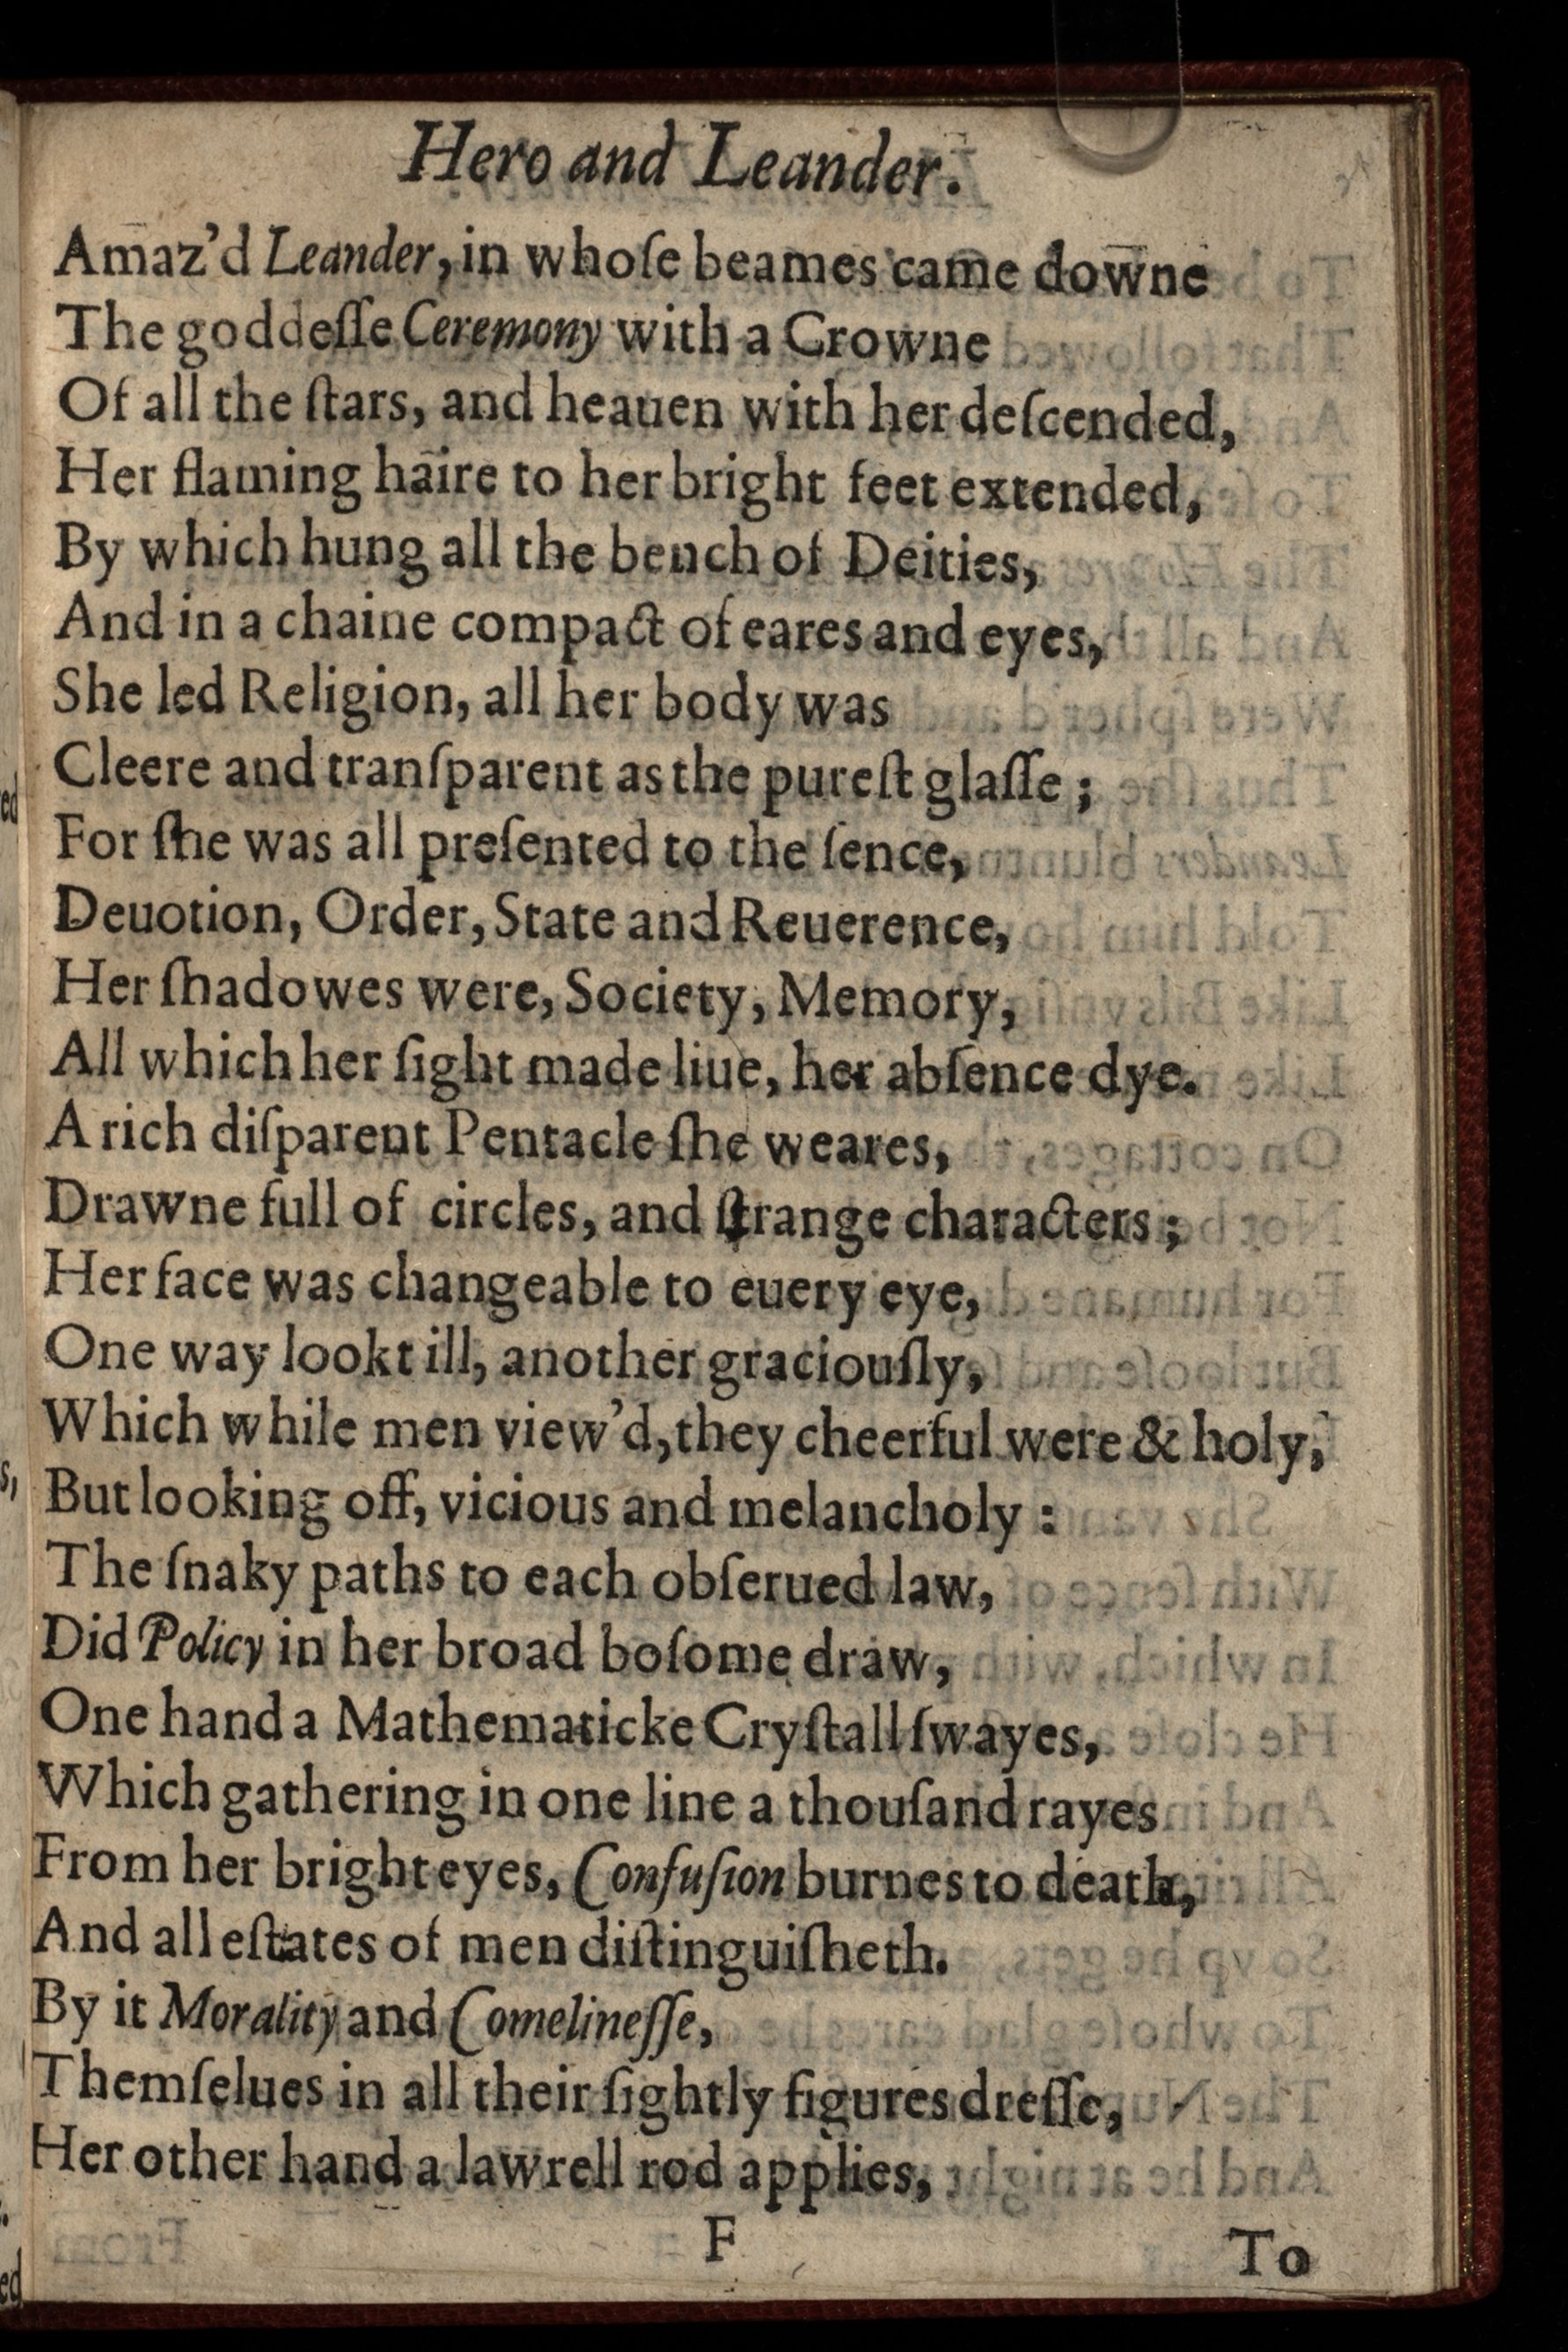 Hero and Leander.
Amaz'd Leander, in whoſe beames came downe
The goddeſſe Ceremony with a Crowne
Of all the ſtars, and heauen with her deſcended,
Her flaming haire to her bright feet extended,
By which hung all the bench of Deities,
And in a chaine compact of eares and eyes,
She led Religion, all her body was
Cleere and tranſparent as the pureſt glaſſe ;
For ſhe was all preſented to the ſence,
Deuotion, Order, State and Reuerence,
Her ſhadowes were, Society, Memory,
All which her ſight made liue, her abſence dye.
A rich diſparent Pentacle ſhe weares,
Drawne full of circles, and ſtrange characters ;
Her face was changeable to euery eye,
One way lookt ill, another graciouſly,
Which while men view'd, they cheerful were & holy,
But looking off, vicious and melancholy :
The ſnaky paths to each obſerued law,
Did Policy in her broad boſome draw,
One hand a Mathematicke Cryſtall ſwayes,
Which gathering in one line a thouſand rayes
From her bright eyes, Confuſion burnes to death,
And all eſtates of men diſtinguiſheth.
By it Morality and Comelineſſe,
Themſelues in all their ſightly figures dreſſe,
Her other hand a lawrell rod applies,
F To